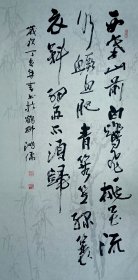 西塞山前白鷺飛桃花流
水鱖魚肥青箬笠綠蓑
衣斜風細雨不須歸
歲次丁亥年